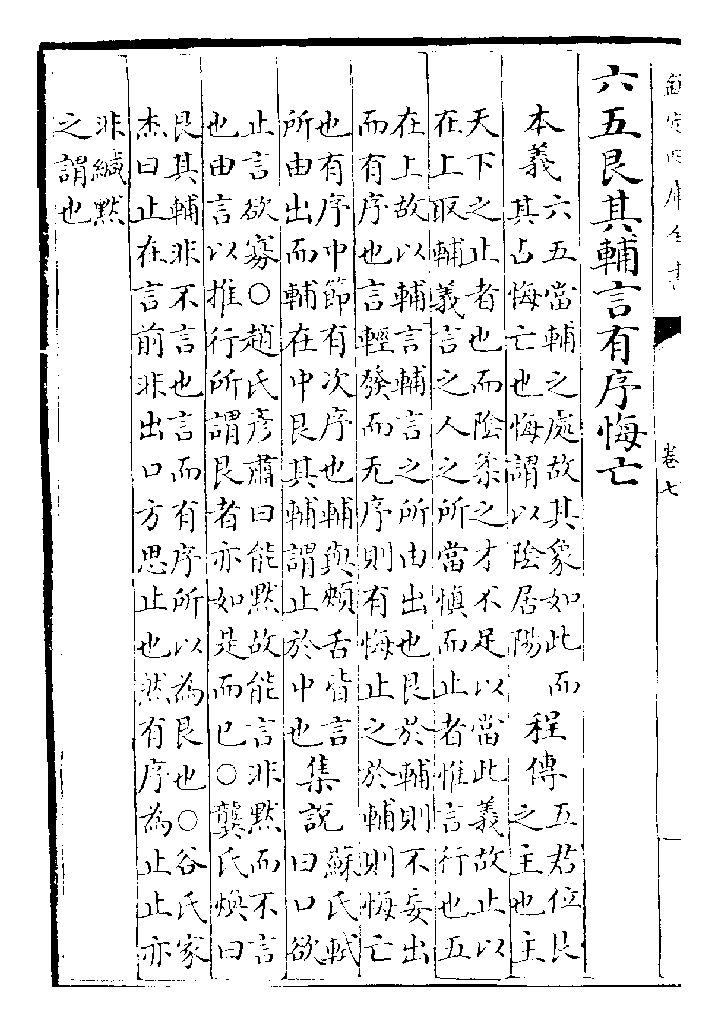 欽定四庫全書
卷七
六五艮其輔言有序悔亡
本義
六五當輔之處故其象如此而
其占悔亡也悔謂以陰居陽
程傳
五君位艮
之主也主
天下之止者也而陰柔之才不足以當此義故止以
在上取輔義言之人之所當慎而止者惟言行也五
在上故以輔言輔言之所由出也艮於輔則不妄出
而有序也言輕發而无序則有悔止之於輔則悔亡
也有序中節有次序也輔與頰舌皆言
所由出而輔在中艮其輔謂止於中也
集說
蘇氏軾
曰口欲
止言欲寡○趙氏彥肅曰能默故能言非默而不言
也由言以推行所謂艮者亦如是而已○龔氏煥曰
艮其輔非不言也言而有序所以為艮也○谷氏家
杰曰止在言前非出口方思止也然有序為止止亦
非緘默
之謂也